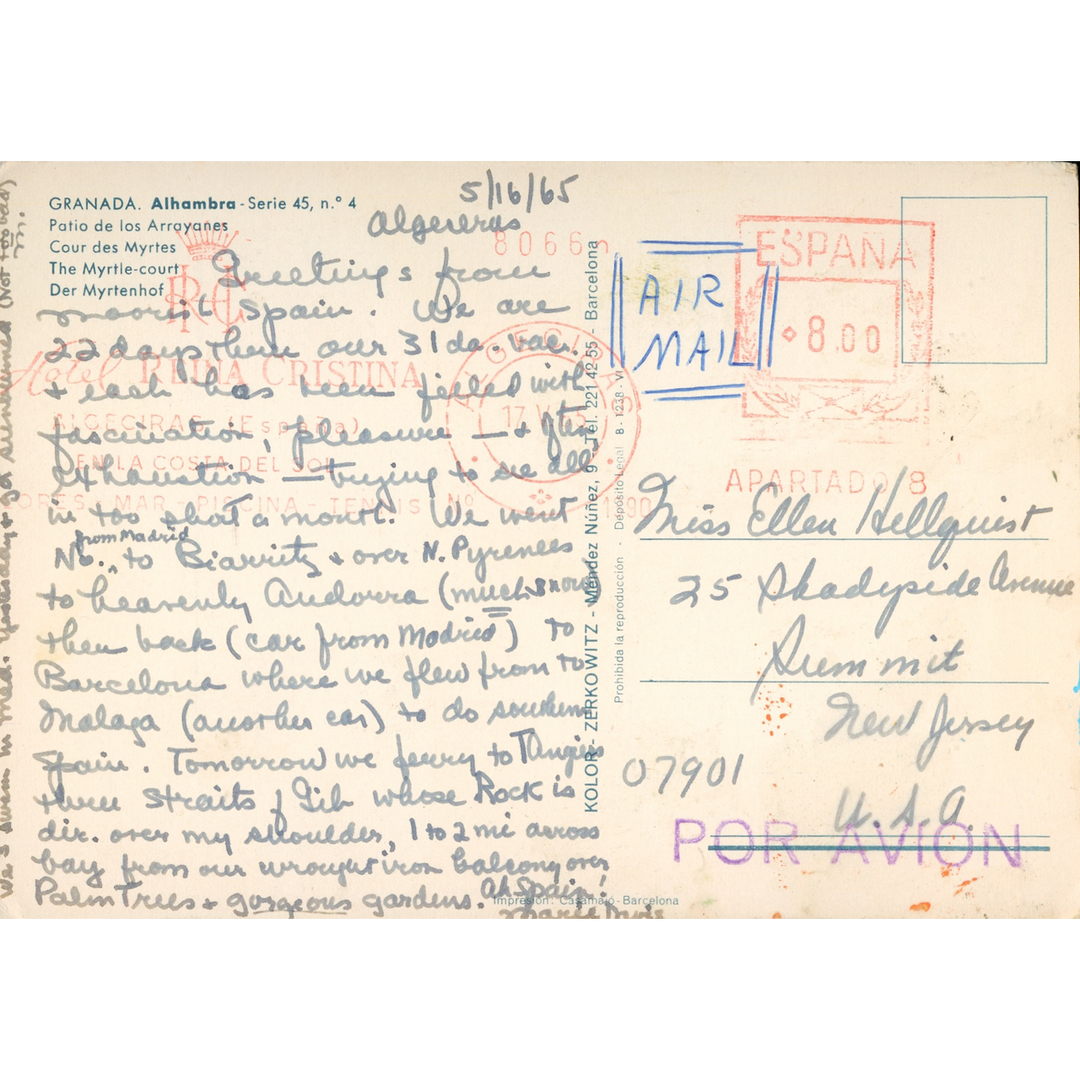 5/16/65
Algeciras
GRANADA. Alhambra - Serie 45, n.º 4
Patio de los Arrayanes
Cour des Myrtes
The Myrtle-court
Der Myrtenhof
Greetings from
moorish Spain. We are
22 days thru our 31 da. vac.
+ each has been filled with
fascination, pleasure — + often
exhaustion — trying to see all
in too short a month. We went
No. from Madrid to Biarritz + over N. Pyrenees
to heavenly Andorra (much snow
then back (car from Madrid) to
Barcelona where we flew from to
Malaga (another car) to do southern
Spain. Tomorrow we ferry to Tangiers
thru Straits of Gib whose Rock is
dir. over my shoulder, 1 to 2 mi across
bay from our wrought iron balcony over
Palm Trees + gorgeous gardens. Ah Spain!
Marie
We 3 swam in Med. yesterday + got sunburned (Not too bad)
8066
Hotel REINA CRISTINA
ALGECIRAS (España)
EN LA COSTA DEL SOL
MAR - PISCINA - TENNIS
Nº 1890
ESPAÑA
8.00
APARTADO 8
AIR
MAIL
KOLOR - ZERKOWITZ - Méndez Núñez, 9 - Tel. 221 42 55 - Barcelona
Prohibida la reproducción - Depósito Legal B-1238-VI
Miss Ellen Hellquist
25 Shadyside Avenue
Summit
New Jersey
07901
U.S.A.
POR AVION
Impresión: Casamajó - Barcelona